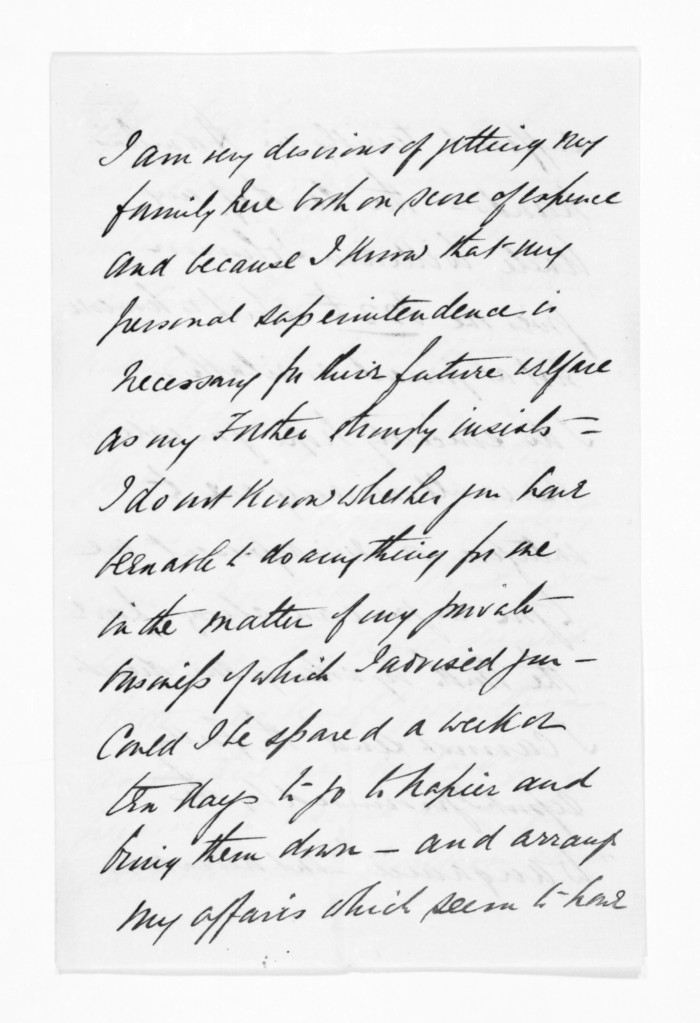 I am very desirous of getting my
family here both on score of expence
and because I know that my
personal superintendence is
necessary for their future welfare
as my Father strongly insists =
I do not know whether you have
been able to do anything for me
in the matter of my private
business of which I advised you –
Could I be spared a week or
ten days to go to Napier and
bring them down – and arrange
my affairs which seem to have